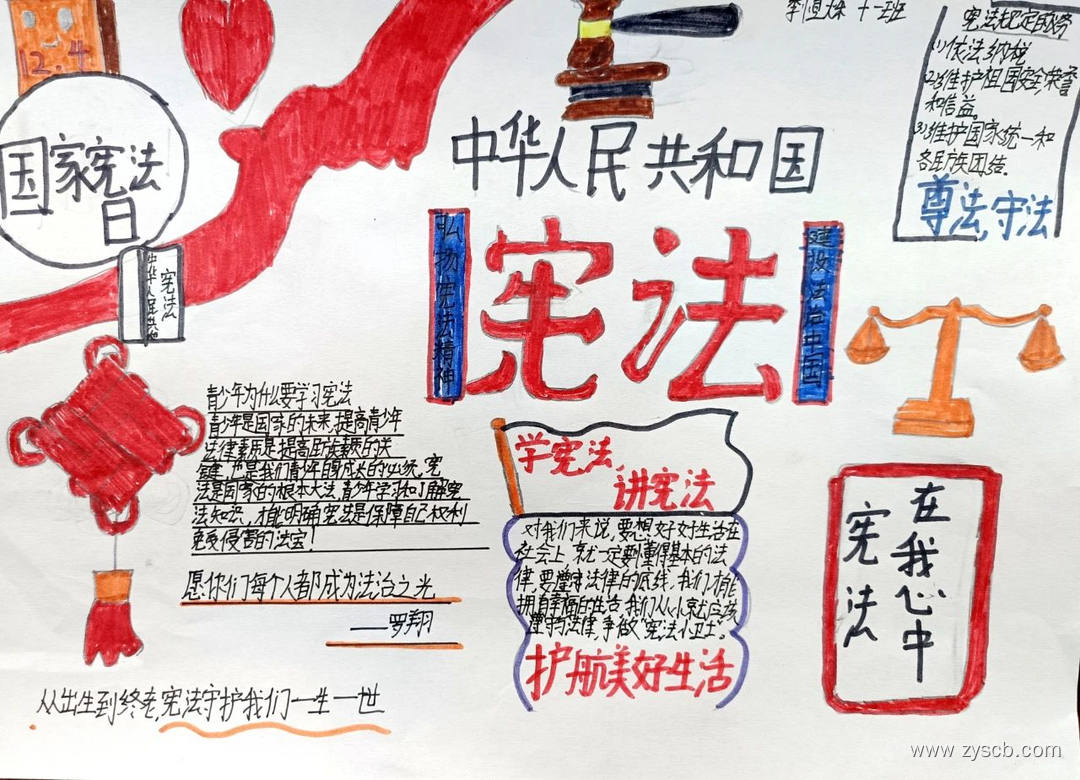 12.4
国家宪法
日
宪法
中华人民共和
李恒
十一班
中华人民共和国
宪法
弘扬宪法精神
建设法治中国
宪法规定的义务
(1)依法纳税
(2)维护祖国安全,荣誉
和信益。
(3)维护国家统一和
各民族团结。
尊法,守法
青少年为什么要学习宪法
青少年是国家的未来,提高青少年
法律素质是提高民族素质的关
键,也是我们青少年自身成长的必须,宪
法是国家的根本大法,青少年学习和了解宪
法知识,才能明确宪法是保障自己权利
免受侵害的法宝!
愿你们每个人都成为法治之光
——罗翔
从出生到终老,宪法守护我们一生一世
学宪法,
讲宪法
对我们来说,要想好好生活在
社会上,就一定要懂得基本的法
律,要遵守法律的底线,我们才能
拥有幸福的生活,我们从小就应该
遵守法律,争做"宪法小卫士"。
护航美好生活
在我心中
宪法
www.zyscb.com